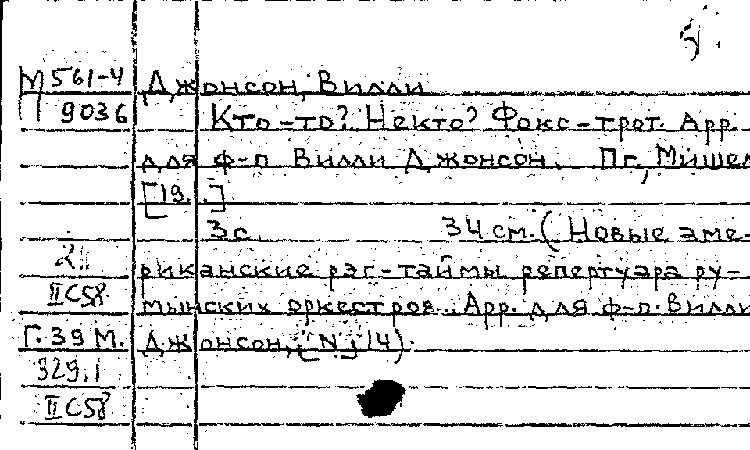 М 561-4 Джонсон, Вилли
П 9036 Кто-то? Некто? Фокс-трот. Арр.
для ф-п Вилли Джонсон. Пг., Мишел
[19..]
3 с. 34 см. (Новые аме-
риканские рэг-таймы репертуара ру-
II C58
мынских оркестров. Арр. для ф-п. Вилли
Г. 39 М. Джонсон, [N] 14).
329.1
II C58